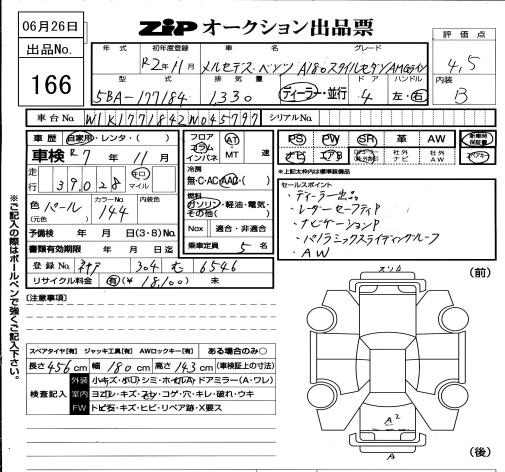 06月26日
ZIP オークション出品票
出品No.
166
評価点
4.5
内装
B
年式 初年度登録 車名 グレード
R2年11月 メルセデス・ベンツ A180スタイルセダンAMGライン
型式 排気量 ドア ハンドル
5BA-177184 1,330 ディーラー・並行 4 左・右
車台No. W1K1771842W045797 シリアルNo.
車歴 自家用・レンタ・( )
車検 R7年 11月
走行 39,028 キロ マイル
色 (元色) パール カラーNo. 144 内装色
予備検 年 月 日(3・8)No.
書類有効期限 年 月 日迄
登録No. 神戸 304 む 6546
リサイクル料金 有(¥ 18,100) 未
フロア コラム インパネ
AT
MT 速
冷房
無・C・AC・AAC・( )
燃料
ガソリン・軽油・電気・その他( )
Nox 適合・非適合
乗車定員 5 名
PS PW SR 革 AW
新車時保証書
ナビ エアB 社外ナビ 社外AW
※上記太枠内は標準装備品
セールスポイント
・ディーラー出品
・レーダーセーフティP
・ナビゲーションP
・パノラミックスライディングルーフ
・AW
※ご記入の際はボールペンで強くご記入下さい。
[注意事項]
スリ傷
(前)
スペアタイヤ[有] ジャッキ工具[有] AWロックキー[有] ある場合のみ○
長さ 456 cm 幅 180 cm 高さ 143 cm (車検証上の寸法)
検査記入
外装 小キズ・小凹・シミ・ホイルA・ドアミラー(A・ワレ)
室内 ヨゴレ・キズ・スレ・コゲ・穴・キレ・破れ・ウキ
FW トビ石・キズ・ヒビ・リペア跡・X要ス
A2
A
(後)